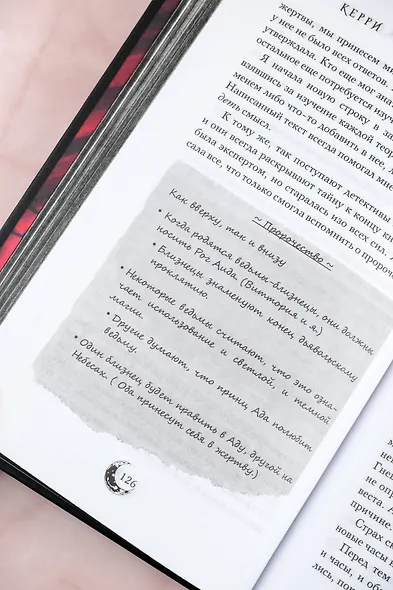 КЕРРИ
жертвы, мы принесем
у нее не было всех ответов.
утверждала. Кто еще мог
остальное еще потребуется
Я начала новую строку в
взявшись за изучение каждой
менем либо что-то добавить в нее,
Написанный текст всегда помогал мне
деть смысл.
К тому же, так поступают детективы
и они всегда раскрывают тайну к концу
была экспертом, но старалась изо всех сил.
сала все, что только смогла вспомнить о
~ Пророчество ~
Как вверху, так и внизу
• Когда родятся ведьмы-близнецы, они должны
носить Рог Аида (Виттория и я.)
• Близнецы знаменуют конец дьявольскому
проклятию.
• Некоторые ведьмы считают, что это озна-
чает использование и светлой, и темной
магии.
• Другие думают, что принц Ада полюбит
ведьму.
• Один близнец будет править в Аду, другой на
Небесах. ( Оба принесут себя в жертву.)
126
Гнев
не опр
веста. А
причине.
Страх
новые часы
Перед тем
и часы, и
лись,